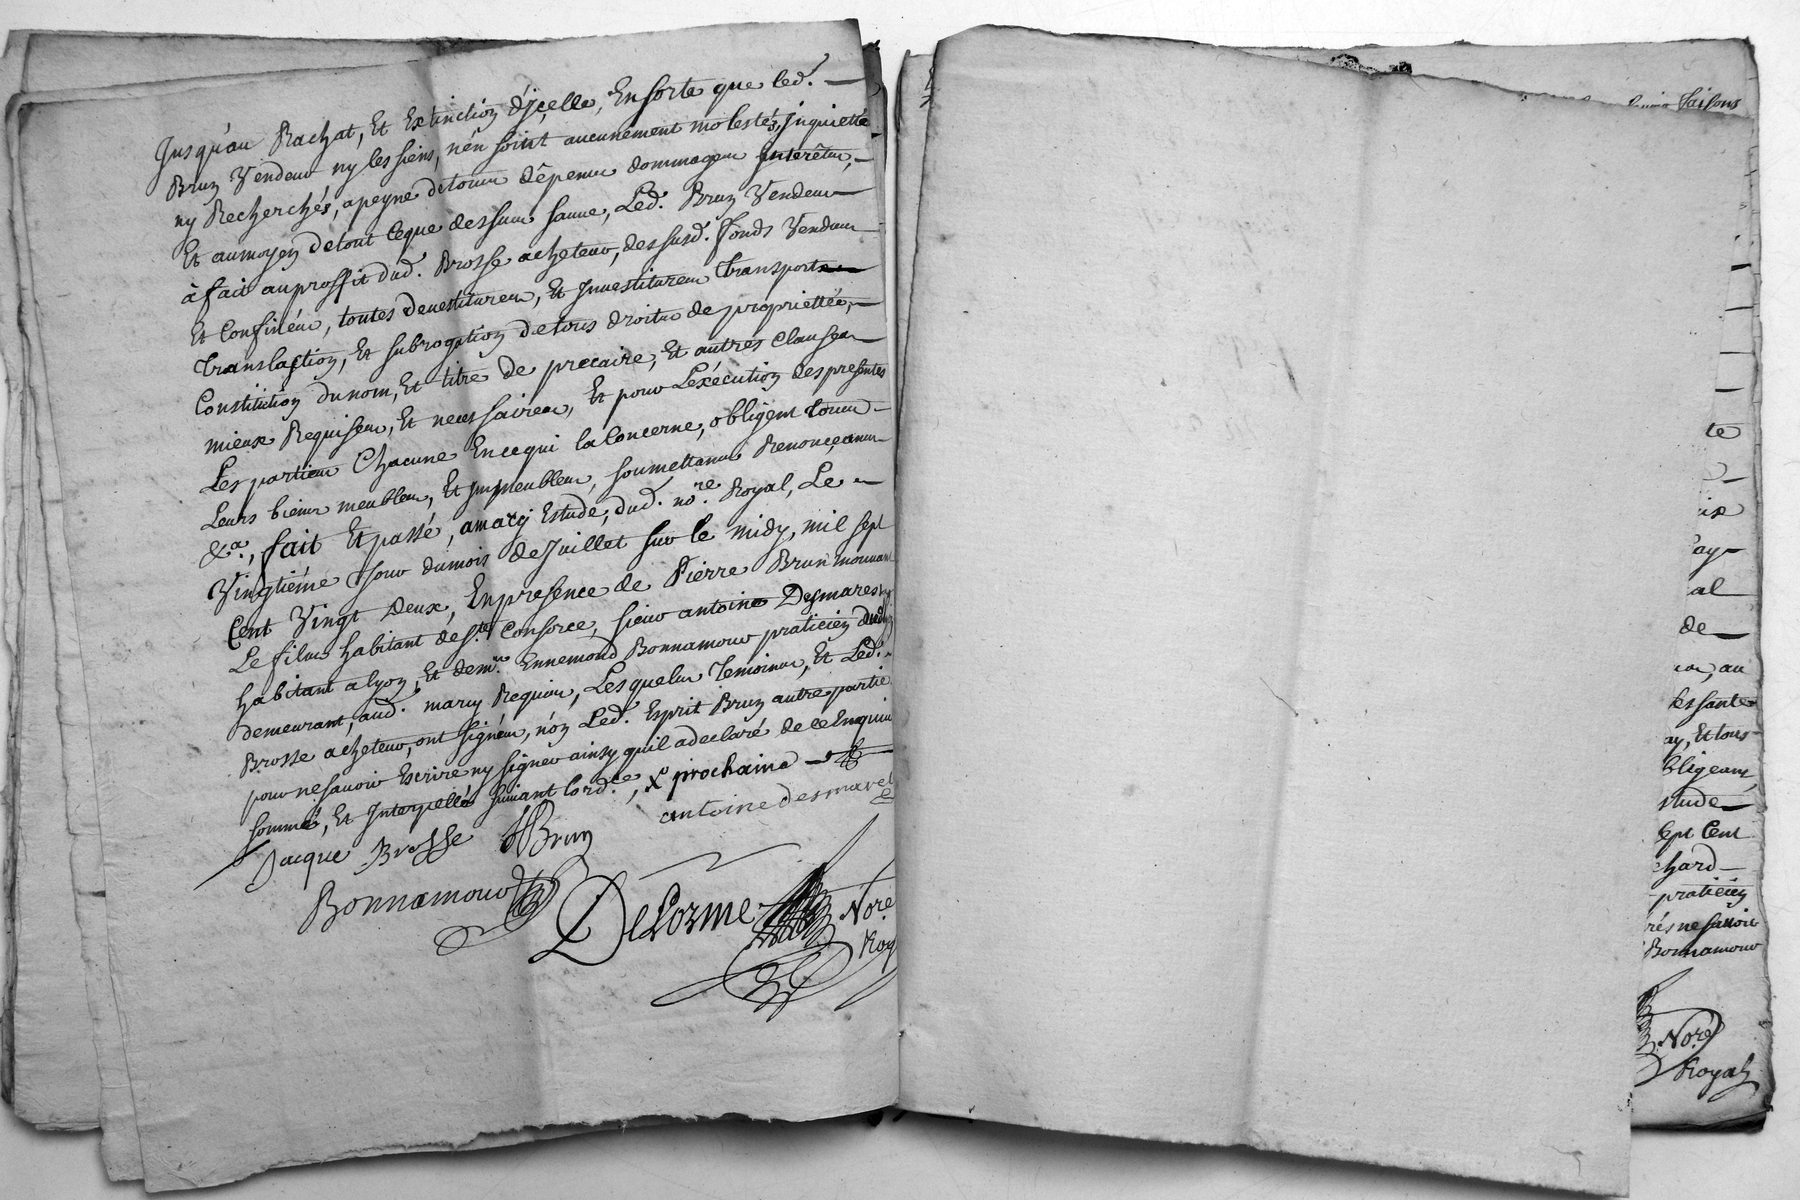 Jusqu'au Rachat, Et Extinction d'ycelle, Ensorte que led. —
Brun Vendeur ny les siens, n'en soint aucunement molestés, Jnquiettés
ny Recherchés, a peyne de tous dépens dommages Jnterêts, —
Et aumoyen detout Ceque dessus sauue, Led. Brun Vendeur —
à fait auproffit dud. Brosse acheteur, des susd. fonds Vendus —
Et Confinés, toutes deuestitures, Et Jnuestitures transports —
translaction, Et subrogation detous droits de proprietée, —
Constitution dunom, Et titre de precaire, Et autres Clauses —
mieux Requises, Et necessaires, Et pour L'exécution des presentes
Les parties Chacune Encequi la Concerne, obligent tous —
Leurs biens meubles, Et Jmmeubles, soumettans Renonçans —
&a., fait Et passé, amarcy Estude, dud. no.re Royal, Le —
Vingtiéme Jour dumois deJuillet sur le midy, mil sept
Cent Vingt Deux, En presence de Pierre Brun mouuant
Le fils habitant de S.te Consorce, sieur antoine Desmares
habitant a lyon, Et dem.re Ennemond Bonnamour praticien dud.
demeurant, aud. marcy Requis, Lesquels Temoins, Et Led.
Brosse acheteur, ont signés, nón Led. Esprit Brun autre partie
pour ne sauoir Escrire ny signer ainsy quil a declaré de ce Enquis
sommé, Et Jnterpellé suiuant lord.ce, x prochaine —
Jacque Brosse Brun antoine desmares
Bonnamour DeLorme Nore.
Roy
saisons
te
ix
ay
al
de —
au
ay, Et tous
bligeans
stude —
sept Cent
chard —
praticien
rés ne sauoir
Bonnamour
Nore.
Royal